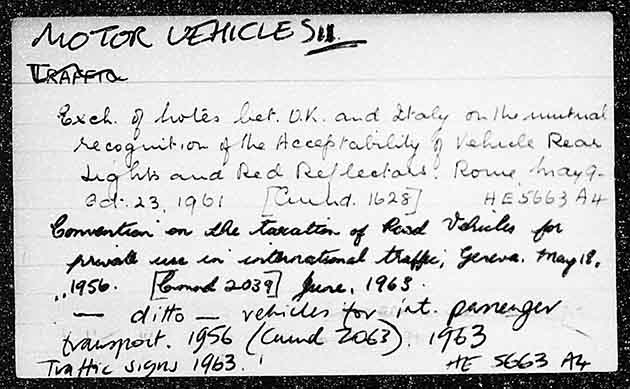 MOTOR VEHICLES
TRAFFIC
Exch. of notes bet. U.K. and Italy on the mutual
recognition of the Acceptability of Vehicle Rear
Lights and Red Reflectors. Rome, May 9-
Oct. 23, 1961 [Cmnd. 1628] HE 5663 A4
Convention on the taxation of Road Vehicles for
private use in international traffic, Geneva. May 18,
1956. [Cmnd 2039] June, 1963.
— ditto — vehicles for int. passenger
transport. 1956 (Cmnd 2063). 1963
Traffic signs 1963. HE 5663 A4